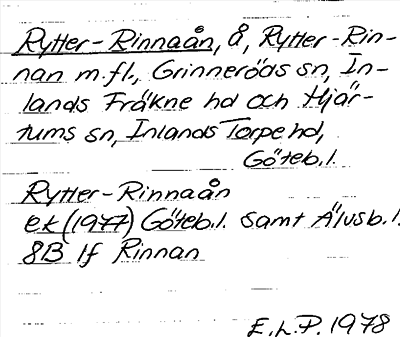 Rytter-Rinnaån, å, Rytter-Rin-
nan m.fl., Grinneröds sn, In-
lands Fräkne hd och Hjär-
tums sn, Inlands Torpe hd,
Göteb.l.
Rytter-Rinnaån
ek (1977) Göteb.l. samt Älvsb.l.
8B If Rinnan
E.L.P. 1978